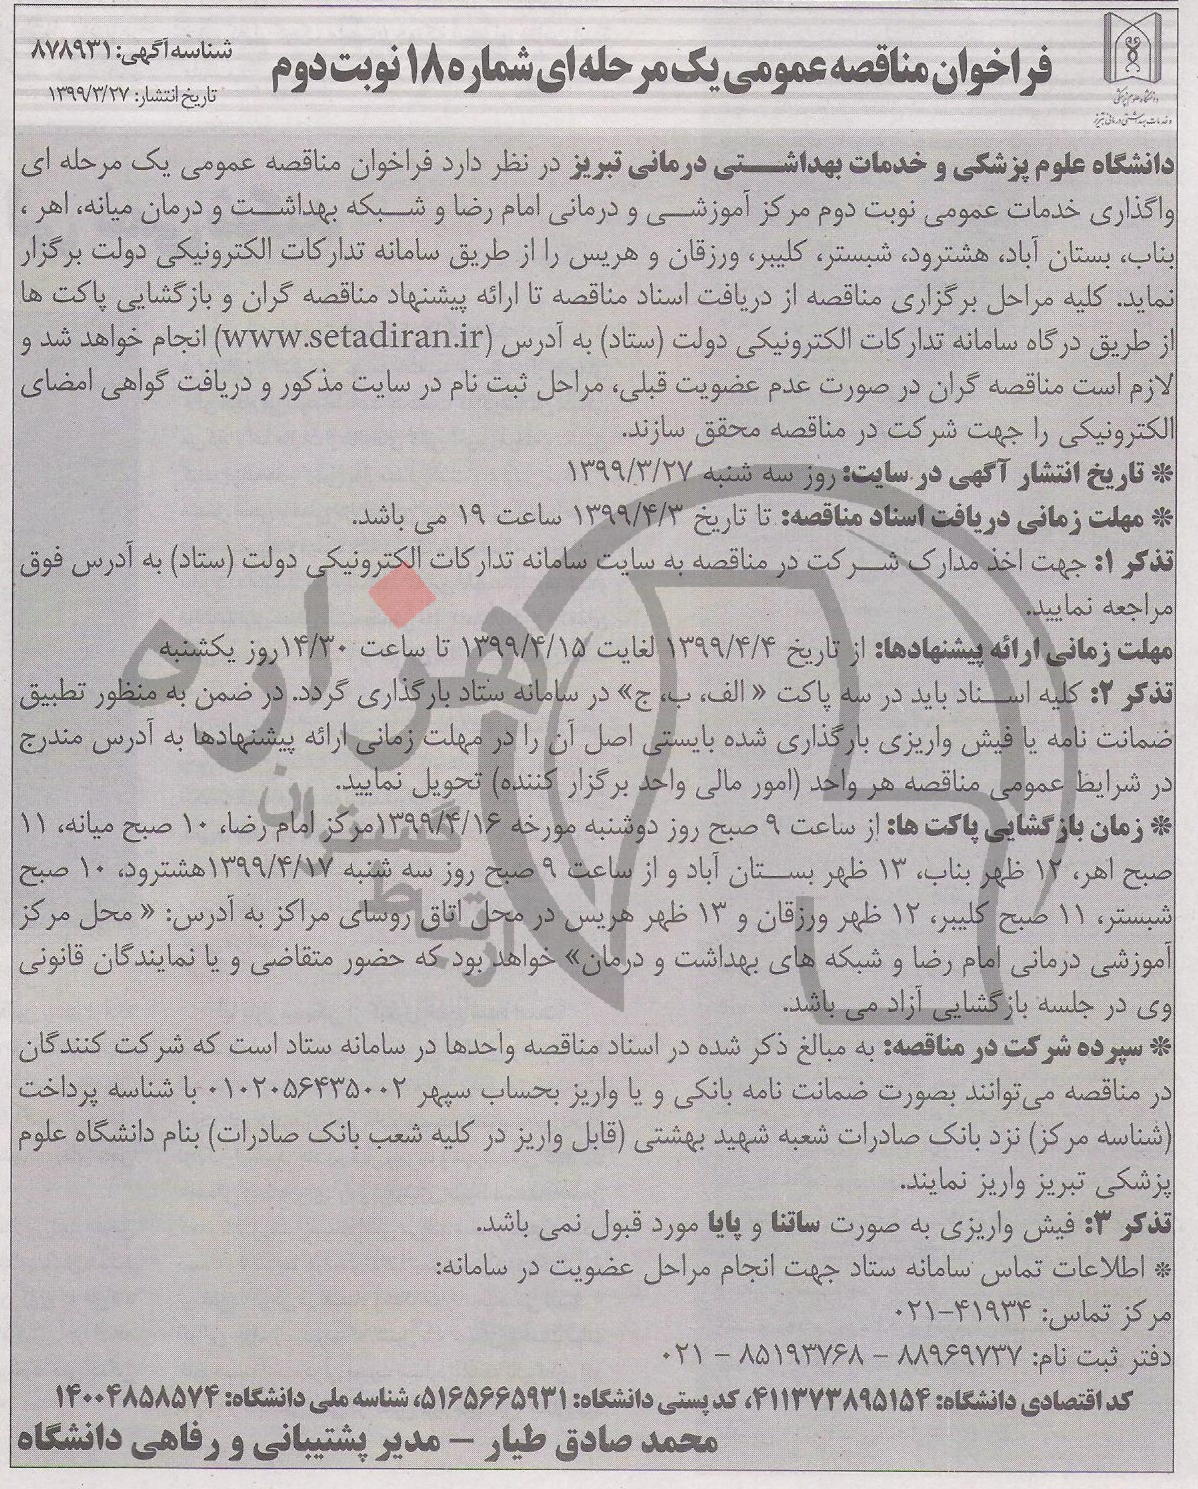 دانشگاه علوم پزشکی
و خدمات بهداشتی درمانی تبریز
فراخوان مناقصه عمومی یک مرحله ای شماره ۱۸ نوبت دوم
شناسه آگهی: ۸۷۸۹۳۱
تاریخ انتشار: ۱۳۹۹/۳/۲۷
دانشگاه علوم پزشکی و خدمات بهداشتی درمانی تبریز در نظر دارد فراخوان مناقصه عمومی یک مرحله ای
واگذاری خدمات عمومی نوبت دوم مرکز آموزشی و درمانی امام رضا و شبکه بهداشت و درمان میانه، اهر ،
بناب، بستان آباد، هشترود، شبستر، کلیبر، ورزقان و هریس را از طریق سامانه تدارکات الکترونیکی دولت برگزار
نماید. کلیه مراحل برگزاری مناقصه از دریافت اسناد مناقصه تا ارائه پیشنهاد مناقصه گران و بازگشایی پاکت ها
از طریق درگاه سامانه تدارکات الکترونیکی دولت (ستاد) به آدرس (www.setadiran.ir) انجام خواهد شد و
لازم است مناقصه گران در صورت عدم عضویت قبلی، مراحل ثبت نام در سایت مذکور و دریافت گواهی امضای
الکترونیکی را جهت شرکت در مناقصه محقق سازند.
* تاریخ انتشار آگهی در سایت: روز سه شنبه ۱۳۹۹/۳/۲۷
* مهلت زمانی دریافت اسناد مناقصه: تا تاریخ ۱۳۹۹/۴/۳ ساعت ۱۹ می باشد.
تذکر ۱: جهت اخذ مدارک شرکت در مناقصه به سایت سامانه تدارکات الکترونیکی دولت (ستاد) به آدرس فوق
مراجعه نمایید.
مهلت زمانی ارائه پیشنهادها: از تاریخ ۱۳۹۹/۴/۴ لغایت ۱۳۹۹/۴/۱۵ تا ساعت ۱۴/۳۰روز یکشنبه
تذکر ۲: کلیه اسناد باید در سه پاکت « الف، ب، ج» در سامانه ستاد بارگذاری گردد. در ضمن به منظور تطبیق
ضمانت نامه یا فیش واریزی بارگذاری شده بایستی اصل آن را در مهلت زمانی ارائه پیشنهادها به آدرس مندرج
در شرایط عمومی مناقصه هر واحد (امور مالی واحد برگزار کننده) تحویل نمایید.
* زمان بازگشایی پاکت ها: از ساعت ۹ صبح روز دوشنبه مورخه ۱۳۹۹/۴/۱۶مرکز امام رضا، ۱۰ صبح میانه، ۱۱
صبح اهر، ۱۲ ظهر بناب، ۱۳ ظهر بستان آباد و از ساعت ۹ صبح روز سه شنبه ۱۳۹۹/۴/۱۷هشترود، ۱۰ صبح
شبستر، ۱۱ صبح کلیبر، ۱۲ ظهر ورزقان و ۱۳ ظهر هریس در محل اتاق روسای مراکز به آدرس: « محل مرکز
آموزشی درمانی امام رضا و شبکه های بهداشت و درمان» خواهد بود که حضور متقاضی و یا نمایندگان قانونی
وی در جلسه بازگشایی آزاد می باشد.
* سپرده شرکت در مناقصه: به مبالغ ذکر شده در اسناد مناقصه واحدها در سامانه ستاد است که شرکت کنندگان
در مناقصه می‌توانند بصورت ضمانت نامه بانکی و یا واریز بحساب سپهر ۰۱۰۲۰۵۶۴۳۵۰۰۲ با شناسه پرداخت
(شناسه مرکز) نزد بانک صادرات شعبه شهید بهشتی (قابل واریز در کلیه شعب بانک صادرات) بنام دانشگاه علوم
پزشکی تبریز واریز نمایند.
تذکر ۳: فیش واریزی به صورت ساتنا و پایا مورد قبول نمی باشد.
* اطلاعات تماس سامانه ستاد جهت انجام مراحل عضویت در سامانه:
مرکز تماس: ۴۱۹۳۴-۰۲۱
دفتر ثبت نام: ۸۸۹۶۹۷۳۷ – ۸۵۱۹۳۷۶۸ – ۰۲۱
کد اقتصادی دانشگاه: ۴۱۱۳۷۳۸۹۵۱۵۴، کد پستی دانشگاه: ۵۱۶۵۶۶۵۹۳۱، شناسه ملی دانشگاه: ۱۴۰۰۴۸۵۸۵۷۴
محمد صادق طیار – مدیر پشتیبانی و رفاهی دانشگاه
هزاره
گستران
ارتباط